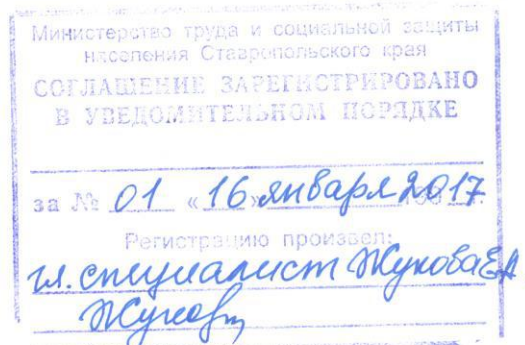 Министерство труда и социальной защиты
населения Ставропольского края
СОГЛАШЕНИЕ ЗАРЕГИСТРИРОВАНО
В УВЕДОМИТЕЛЬНОМ ПОРЯДКЕ
за № 01 «16» января 2017
Регистрацию произвел:
гл. специалист Жукова ЕА